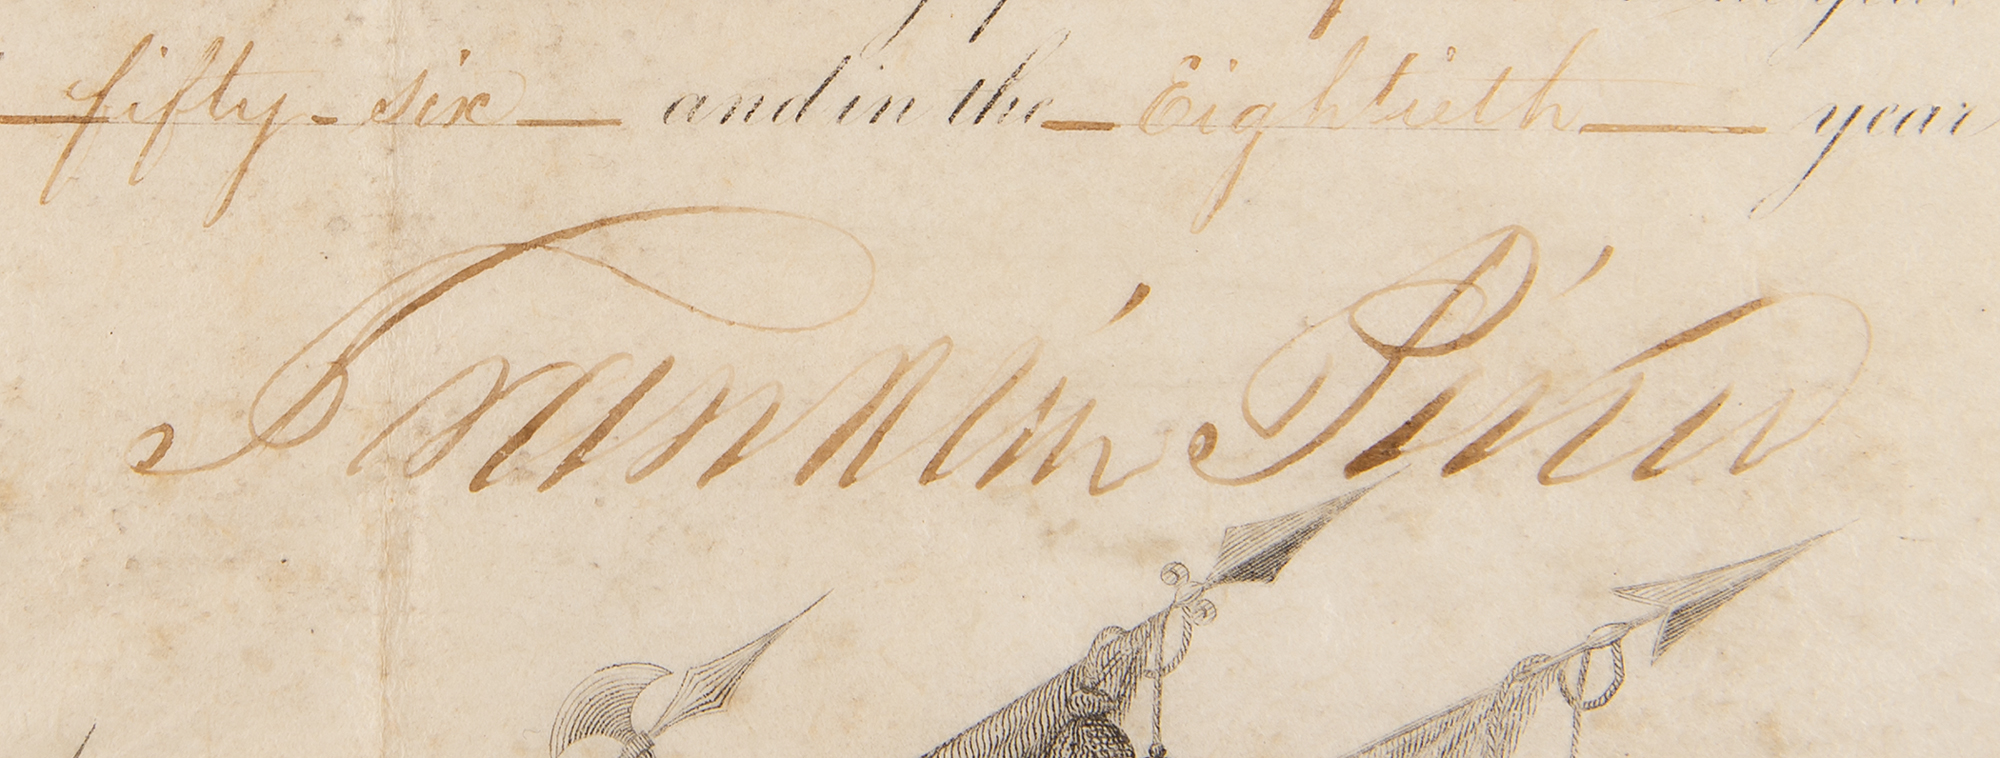 fifty-six and in the Eightieth year
Franklin Pierce